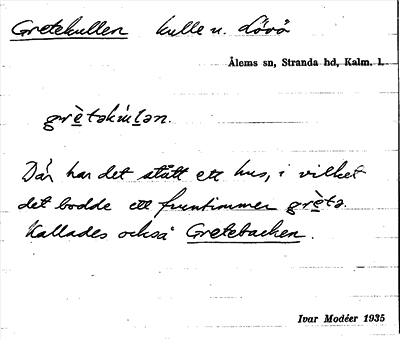 Gretekullen kulle n. Lövö
Ålems sn, Stranda hd, Kalm. l.
grètəkúlən.
Där har det stått ett hus, i vilket
det bodde ett fruntimmer grètə.
Kallades också Gretebacken.
Ivar Modéer 1935